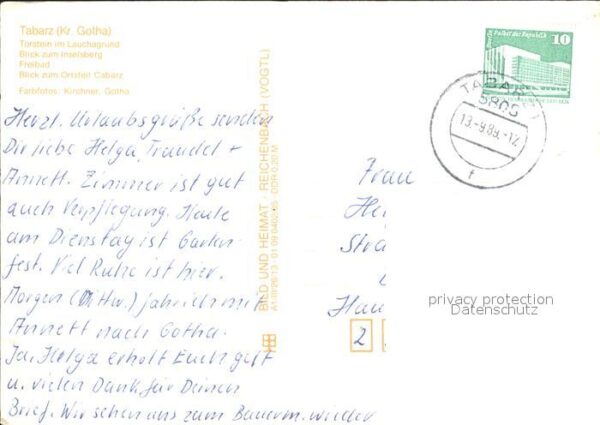 Tabarz (Kr. Gotha)
Torstein im Lauchagrund
Blick zum Inselsberg
Freibad
Blick zum Ortsteil Cabarz
Farbfotos: Kirchner, Gotha
Herzl. Urlaubsgrüße senden
Dir liebe Helga, Traudel +
Annett. Zimmer ist gut
auch Verpflegung. Heute
am Dienstag ist Garten-
fest. Viel Ruhe ist hier.
Morgen (Mittw.) fahr ich mit
Annett nach Gotha.
Ja, Helga erholt Euch gut
u. vielen Dank für Deinen
Brief. Wir sehen uns zum Bauerm. wieder
BILD UND HEIMAT REICHENBACH (VOGTL)
A1/III/26/13 DDR 0,20 M
Palast der Republik
10
TABARZ
5808
13.-9.89.-17
f
Frau
Hei
Stra
Hau
2
privacy protection
Datenschutz